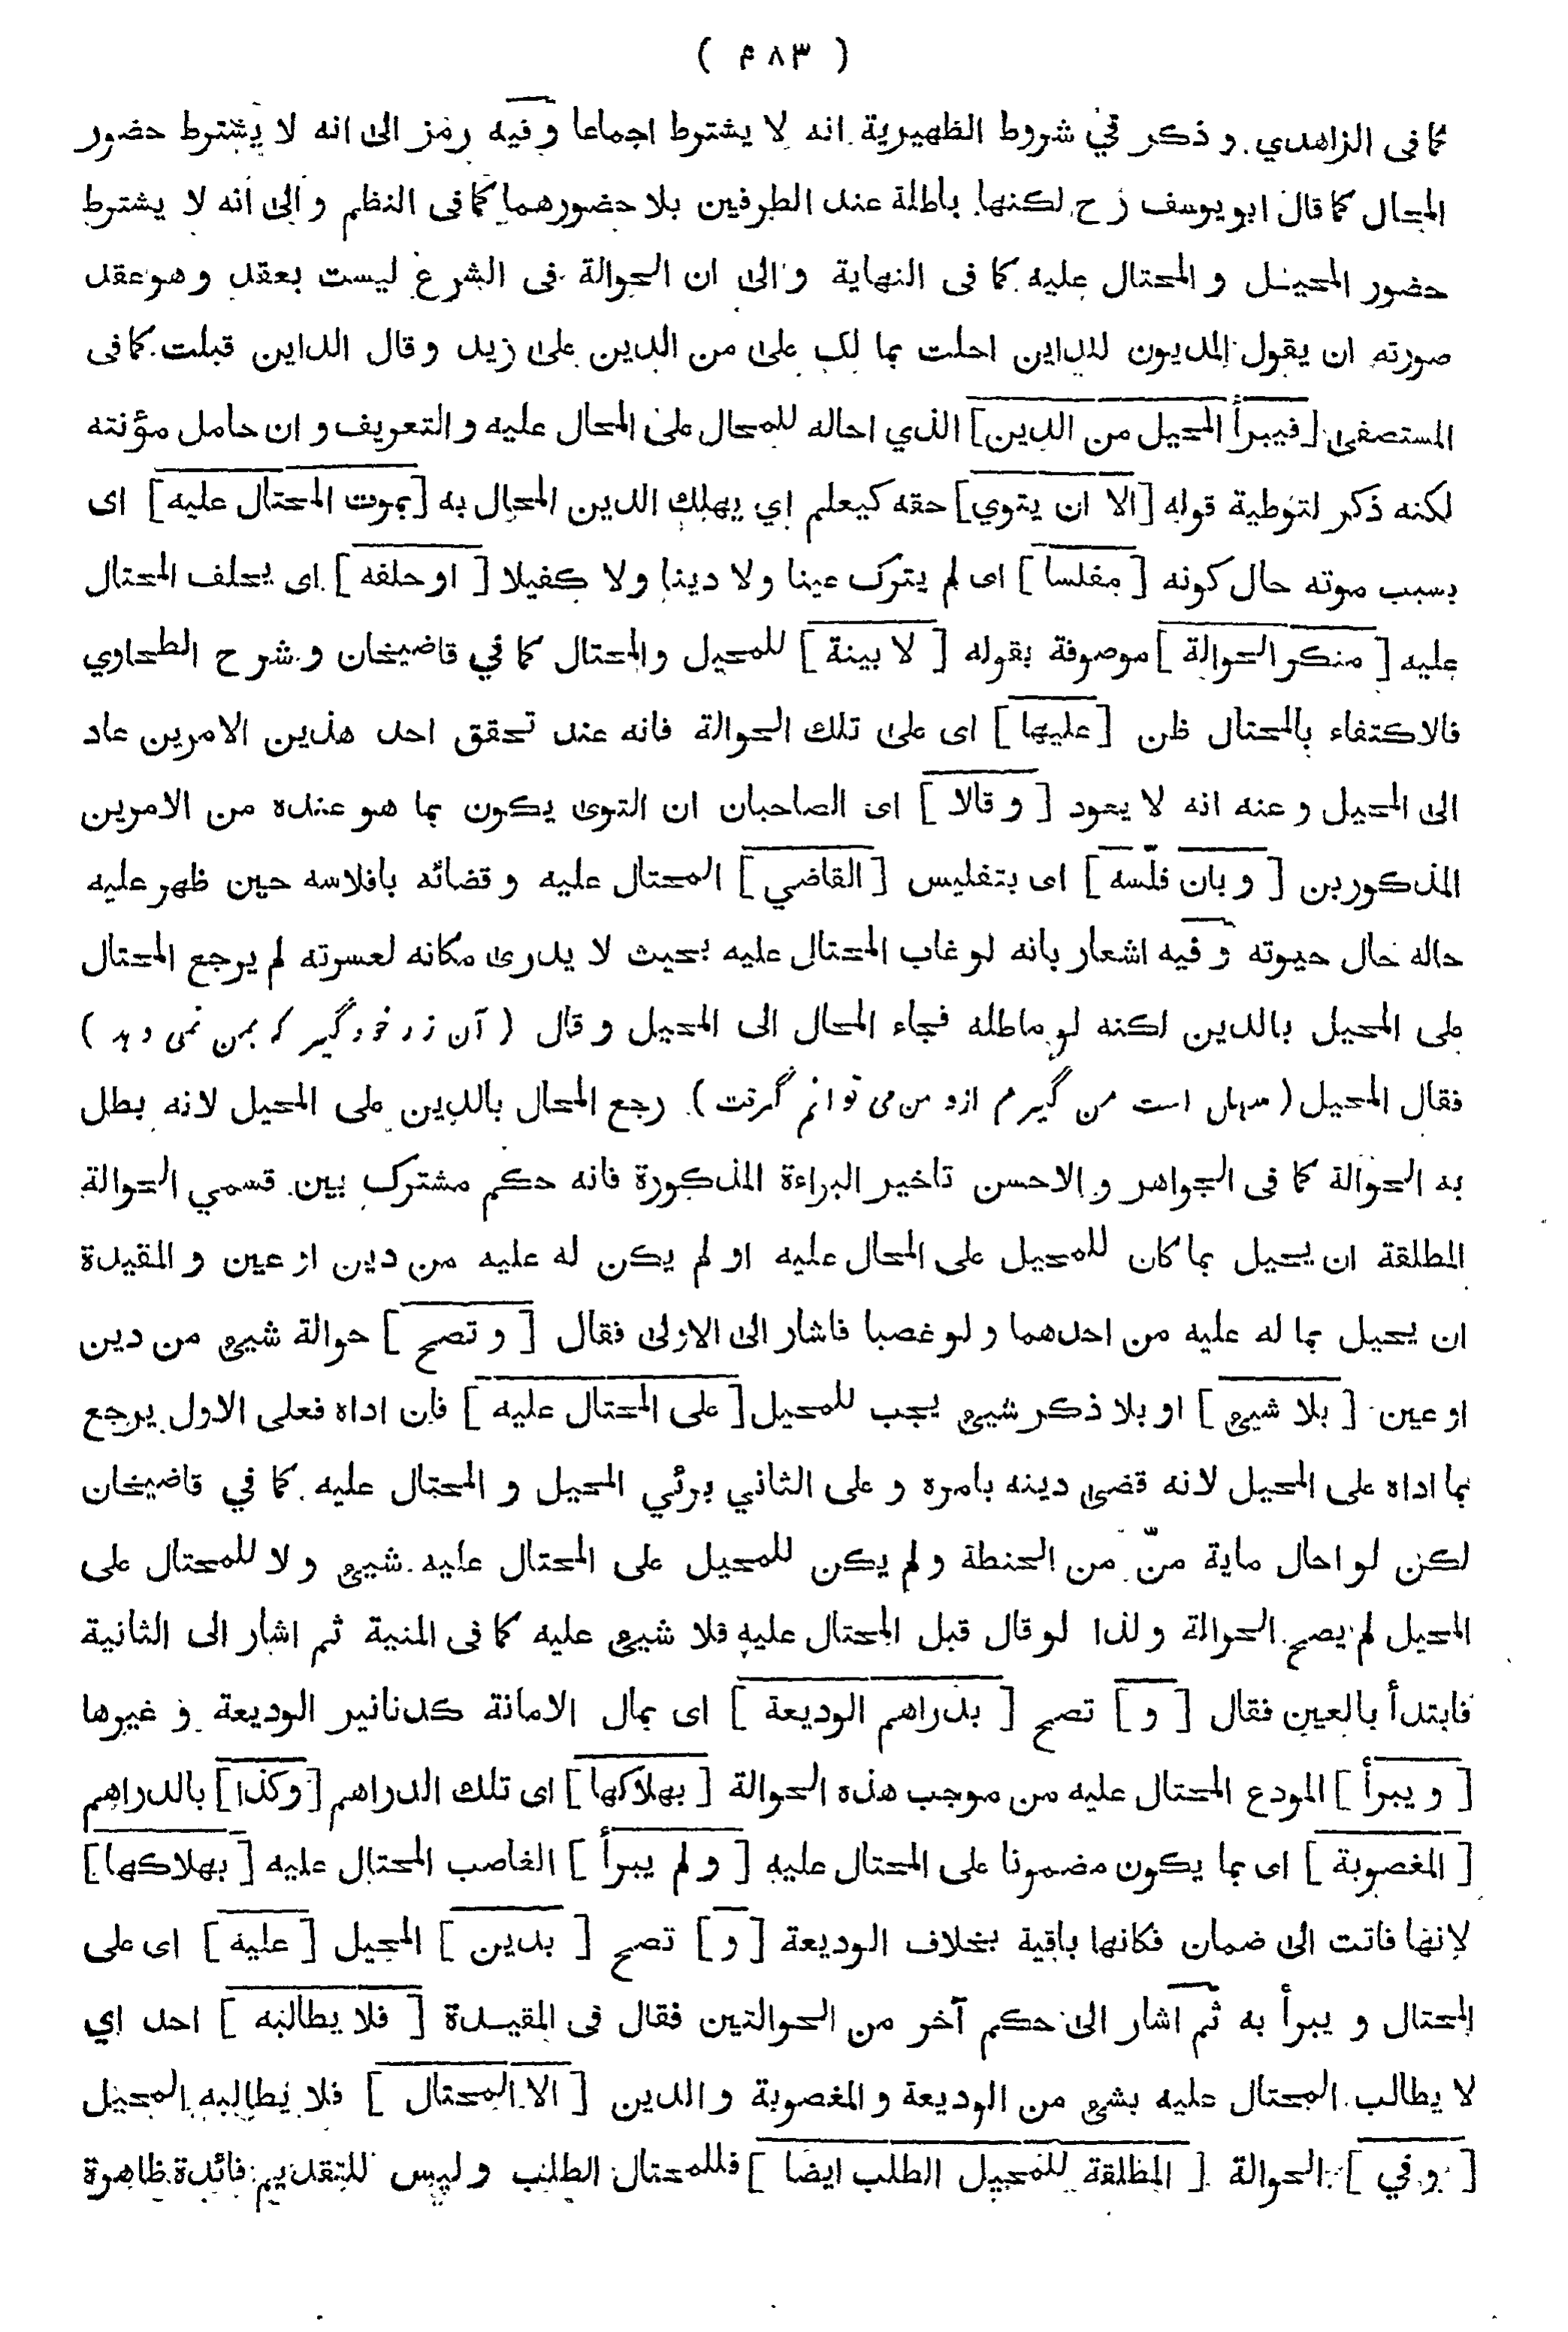 ( ۴۸۳ )
كما فى الزاهدي و ذكر في شروط الظهيرية انه لا يشترط اجماعا و فيه رمز الى انه لا يشترط حضور
المحال كما قال ابو يوسف رح لكنها باطلة عند الطرفين بلا حضورهما كما فى النظم و الى انه لا يشترط
حضور المحيل و المحتال عليه كما فى النهاية و الى ان الحوالة فى الشرع ليست بعقد و هو عقد
صورته ان يقول المديون للداين احلت بما لك على من الدين على زيد و قال الداين قبلت كما فى
المستصفى [فيبرأ المحيل من الدين] الذي احاله للمحال على المحال عليه و التعريف و ان حامل مؤنته
لكنه ذكر لتوطية قوله [الا ان يتوي] حقه كيعلم اي يهلك الدين المحال به [بموت المحتال عليه] اى
بسبب موته حال كونه [مفلسا] اى لم يترك عينا ولا دينا ولا كفيلا [او حلفه] اى يحلف المحتال
عليه [منكر الحوالة] موصوفة بقوله [لا بينة] للمحيل والمحتال كما في قاضيخان و شرح الطحاوي
فالاكتفاء بالمحتال ظن [عليها] اى على تلك الحوالة فانه عند تحقق احد هذين الامرين عاد
الى المحيل و عنه انه لا يعود [و قالا] اى الصاحبان ان التوى يكون بما هو عنده من الامرين
المذكورين [و بان فلّسه] اى بتفليس [القاضي] المحتال عليه و قضائه بافلاسه حين ظهر عليه
حاله حال حيوته و فيه اشعار بانه لو غاب المحتال عليه بحيث لا يدرى مكانه لعسرته لم يرجع المحتال
على المحيل بالدين لكنه لو ماطله فجاء المحال الى المحيل و قال ( آن زر خود گير كه بمن نمى دهد )
فقال المحيل ( سهل است من گيرم ازو من مى توانم گرفت ) رجع المحال بالدين على المحيل لانه بطل
به الحوالة كما فى الجواهر و الاحسن تاخير البراءة المذكورة فانه حكم مشترك بين قسمي الحوالة
المطلقة ان يحيل بما كان للمحيل على المحال عليه او لم يكن له عليه من دين او عين و المقيدة
ان يحيل بما له عليه من احدهما و لو غصبا فاشار الى الاولى فقال [و تصح] حوالة شيئ من دين
او عين [بلا شيئ] او بلا ذكر شيئ يجب للمحيل [على المحتال عليه] فان اداه فعلى الاول يرجع
بما اداه على المحيل لانه قضى دينه بامره و على الثاني برئي المحيل و المحتال عليه كما في قاضيخان
لكن لو احال ماية منّ من الحنطة و لم يكن للمحيل على المحتال عليه شيئ و لا للمحتال على
المحيل لم يصح الحوالة و لذا لو قال قبل المحتال عليه فلا شيئ عليه كما فى المنية ثم اشار الى الثانية
فابتدأ بالعين فقال [و] تصح [بدراهم الوديعة] اى بمال الامانة كدنانير الوديعة و غيرها
[و يبرأ] المودع المحتال عليه من موجب هذه الحوالة [بهلاكها] اى تلك الدراهم [وكذا] بالدراهم
[المغصوبة] اى بما يكون مضمونا على المحتال عليه [و لم يبرأ] الغاصب المحتال عليه [بهلاكها]
لانها فاتت الى ضمان فكانها باقية بخلاف الوديعة [و] تصح [بدين] المحيل [عليه] اى على
المحتال و يبرأ به ثم اشار الى حكم آخر من الحوالتين فقال فى المقيدة [فلا يطالبه] احد اي
لا يطالب المحتال عليه بشئ من الوديعة و المغصوبة و الدين [الا المحتال] فلا يطالبه المحيل
[و في] الحوالة [المطلقة للمحيل الطلب ايضا] فللمحتال الطلب و ليس للتقديم فائدة ظاهرة